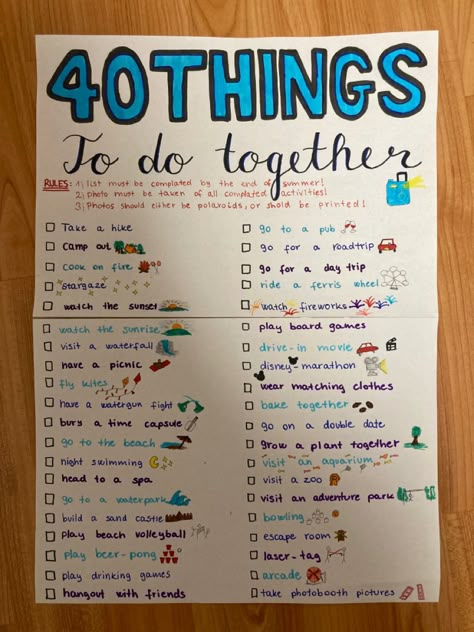 40THINGS
To do together
RULES: 1) list must be complated by the end of summer!
2) photo must be taken of all complated activities!
3) Photos should either be polaroids, or shold be printed!
Take a hike
Camp out
Cook on fire
Stargaze
watch the sunset
watch the sunrise
visit a waterfall
have a picnic
fly kites
have a watergun fight
bury a time capsule
go to the beach
night swimming
head to a spa
go to a waterpark
build a sand castle
play beach volleyball
play beer-pong
play drinking games
hangout with friends
go to a pub
go for a roadtrip
go for a day trip
ride a ferris wheel
watch fireworks
play board games
drive-in movie
disney-marathon
wear matching clothes
bake together
go on a double date
grow a plant together
visit an aquarium
visit a zoo
visit an adventure park
bowling
escape room
laser-tag
arcade
take photobooth pictures